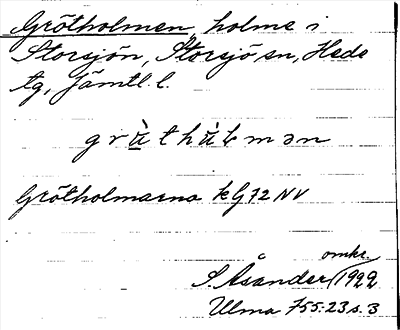 Grötholmen, holme i
Storsjön, Storsjö sn, Hede
tg, Jämtl. l.
Grötholmarna kG72 NV
omkr.
S Åsander 1922
Ulma 755:23 s. 3